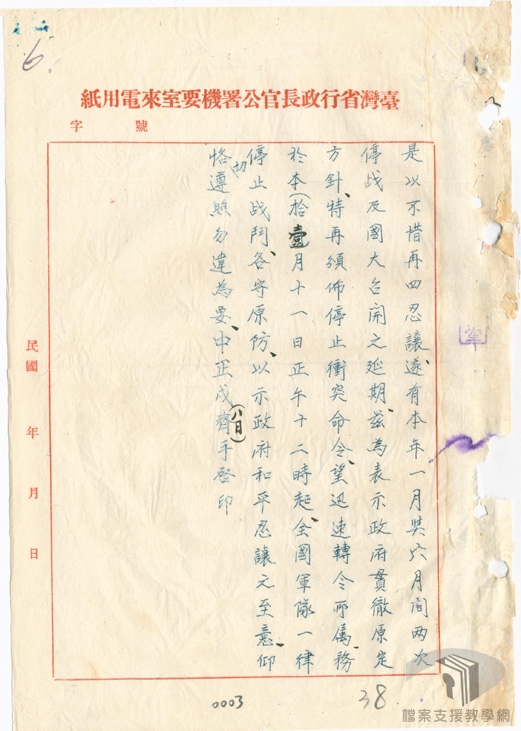 6.
臺灣省行政長官公署機要室來電用紙
字 號
是以不惜再四忍讓、遂有本年一月與六月間兩次
停战及國大召開之延期、茲為表示政府貫徹原定
方針、特再頒佈停止衝突命令、望迅速轉令所屬、務
於本(拾壹)月十一日正午十二時起、全國軍隊一律
停止战鬥、各守原防、以示政府和平忍讓之至意、仰
切
恪遵照勿違為要、中正戌齊手啓印
(八日)
民國 年 月 日
0003
38
檔案支援教學網